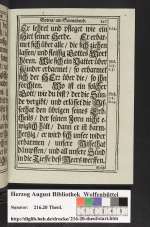 Er lehret und pfleget wie ein
Hirt seine Herde. Er erbar-
met sich über alle / die sich ziehen
lassen / und fleißig Gottes Wort
hören. Wie sich ein Vatter über
Kinder erbarmet / so erbarmet
sich der HErr über die / so ihn
förchten. Wo ist ein solcher
Gott wie du bist / der die Sün-
de vergibt / und erlässet die Misse-
that den übrigen seines
der seinen Zorn nicht e-
wiglich hält / dann er ist barm-
hertzig / er wird sich unser wider
erbarmen / unsere Missethat
dämpfen / und all unsere Sünd
in die Tieffe deß Meers werffen.
Herzog August Bibliothek Wolfenbüttel
Signatur: 216.20 Theol.
http://diglib.hab.de/drucke/216-20-theol/start.htm